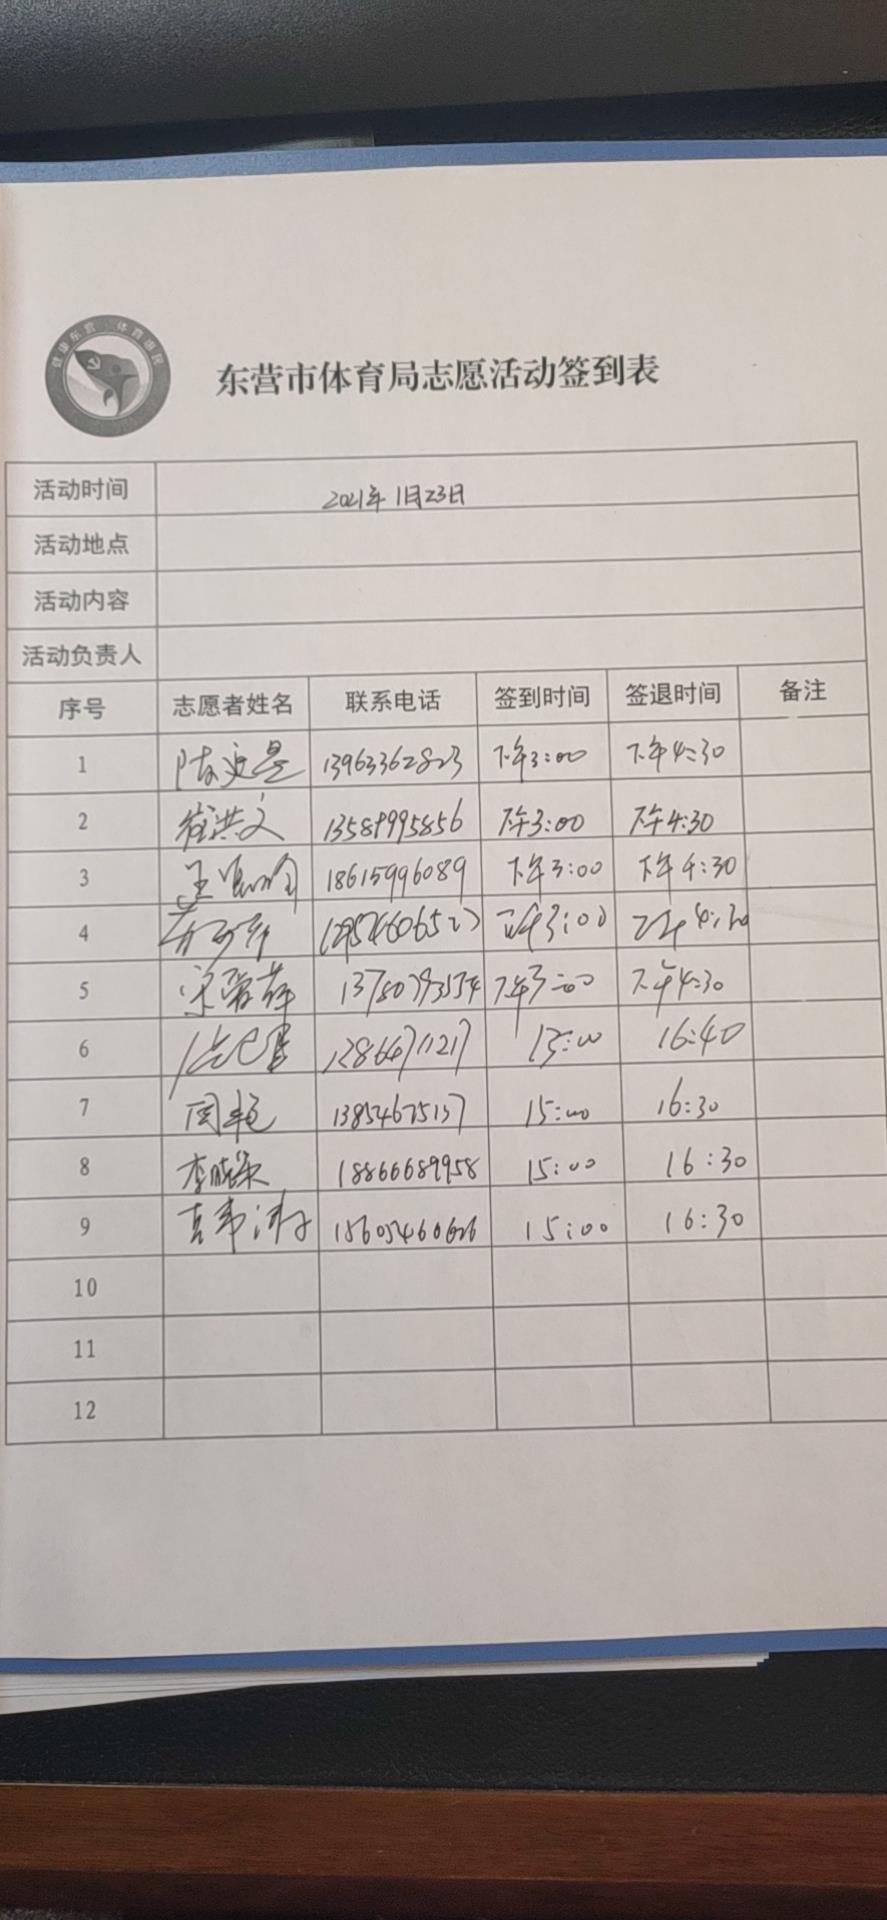 健康东营 体育惠民
东营市体育局志愿活动签到表
活动时间 2021年1月23日
活动地点
活动内容
活动负责人
序号 志愿者姓名 联系电话 签到时间 签退时间 备注
1 13963362823 下午3:00 下午4:30
2 崔洪文 13589995856 下午3:00 下午4:30
3 18615996089 下午3:00 下午4:30
4 下午3:00 下午4:30
5 下午3:00 下午4:30
6 15:00 16:40
7 周艳 13854675137 15:00 16:30
8 18866689958 15:00 16:30
9 15605460626 15:00 16:30
10
11
12